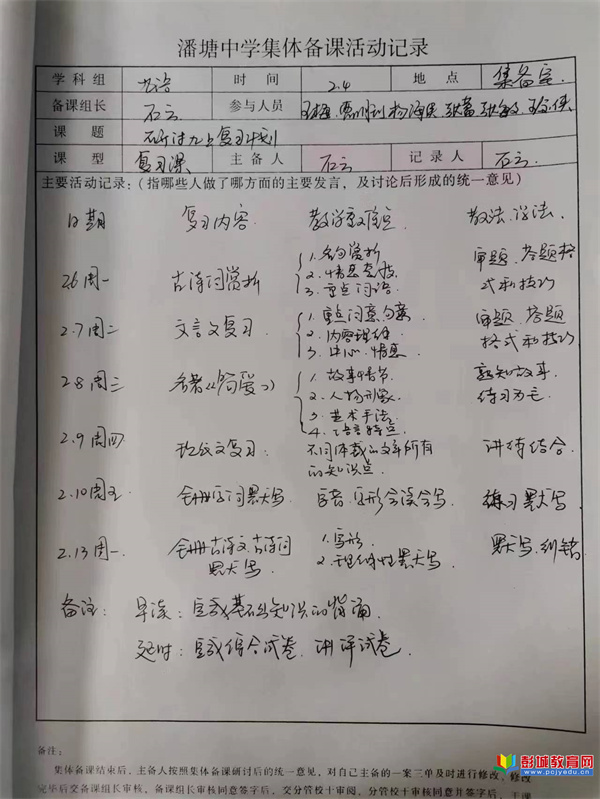 潘塘中学集体备课活动记录
学科组 九语 时间 2.4 地点 集备室
备课组长 石云 参与人员
课题 研讨九上复习计划
课型 复习课 主备人 石云 记录人 石云
主要活动记录:(指哪些人做了哪方面的主要发言,及讨论后形成的统一意见)
日期 复习内容 教学重难点 教法.学法
2.6周一 古诗词赏析 1.名句赏析 2.情感 3.重点词语 审题.答题格式和技巧
2.7周二 文言文复习 1.重点词意.句意 2.内容理解 3.中心.情感 审题.答题格式和技巧
2.8周三 名著《简爱》 1.故事情节 2.人物形象 3.艺术手法 4.语言特点 熟知故事.练习为主
2.9周四 现代文复习 不同体裁的文章所有的知识点 讲练结合
2.10周五 全册字词默写 字音.字形会读会写 练习默写
2.13周一. 全册古诗文.古诗词默写 1.字形 2.理解性默写 默写.纠错
备注: 早读:完成基础知识的背诵
延时:完成综合试卷.讲评试卷.
备注:
集体备课结束后,主备人按照集体备课研讨后的统一意见,对自己主备的一案三单及时进行修改,修改
完毕后交备课组长审核,备课组长审核同意签字后,交分管校干审阅,分管校干审核同意并签字后,于课
彭城教育网
www.pcjyedu.cn